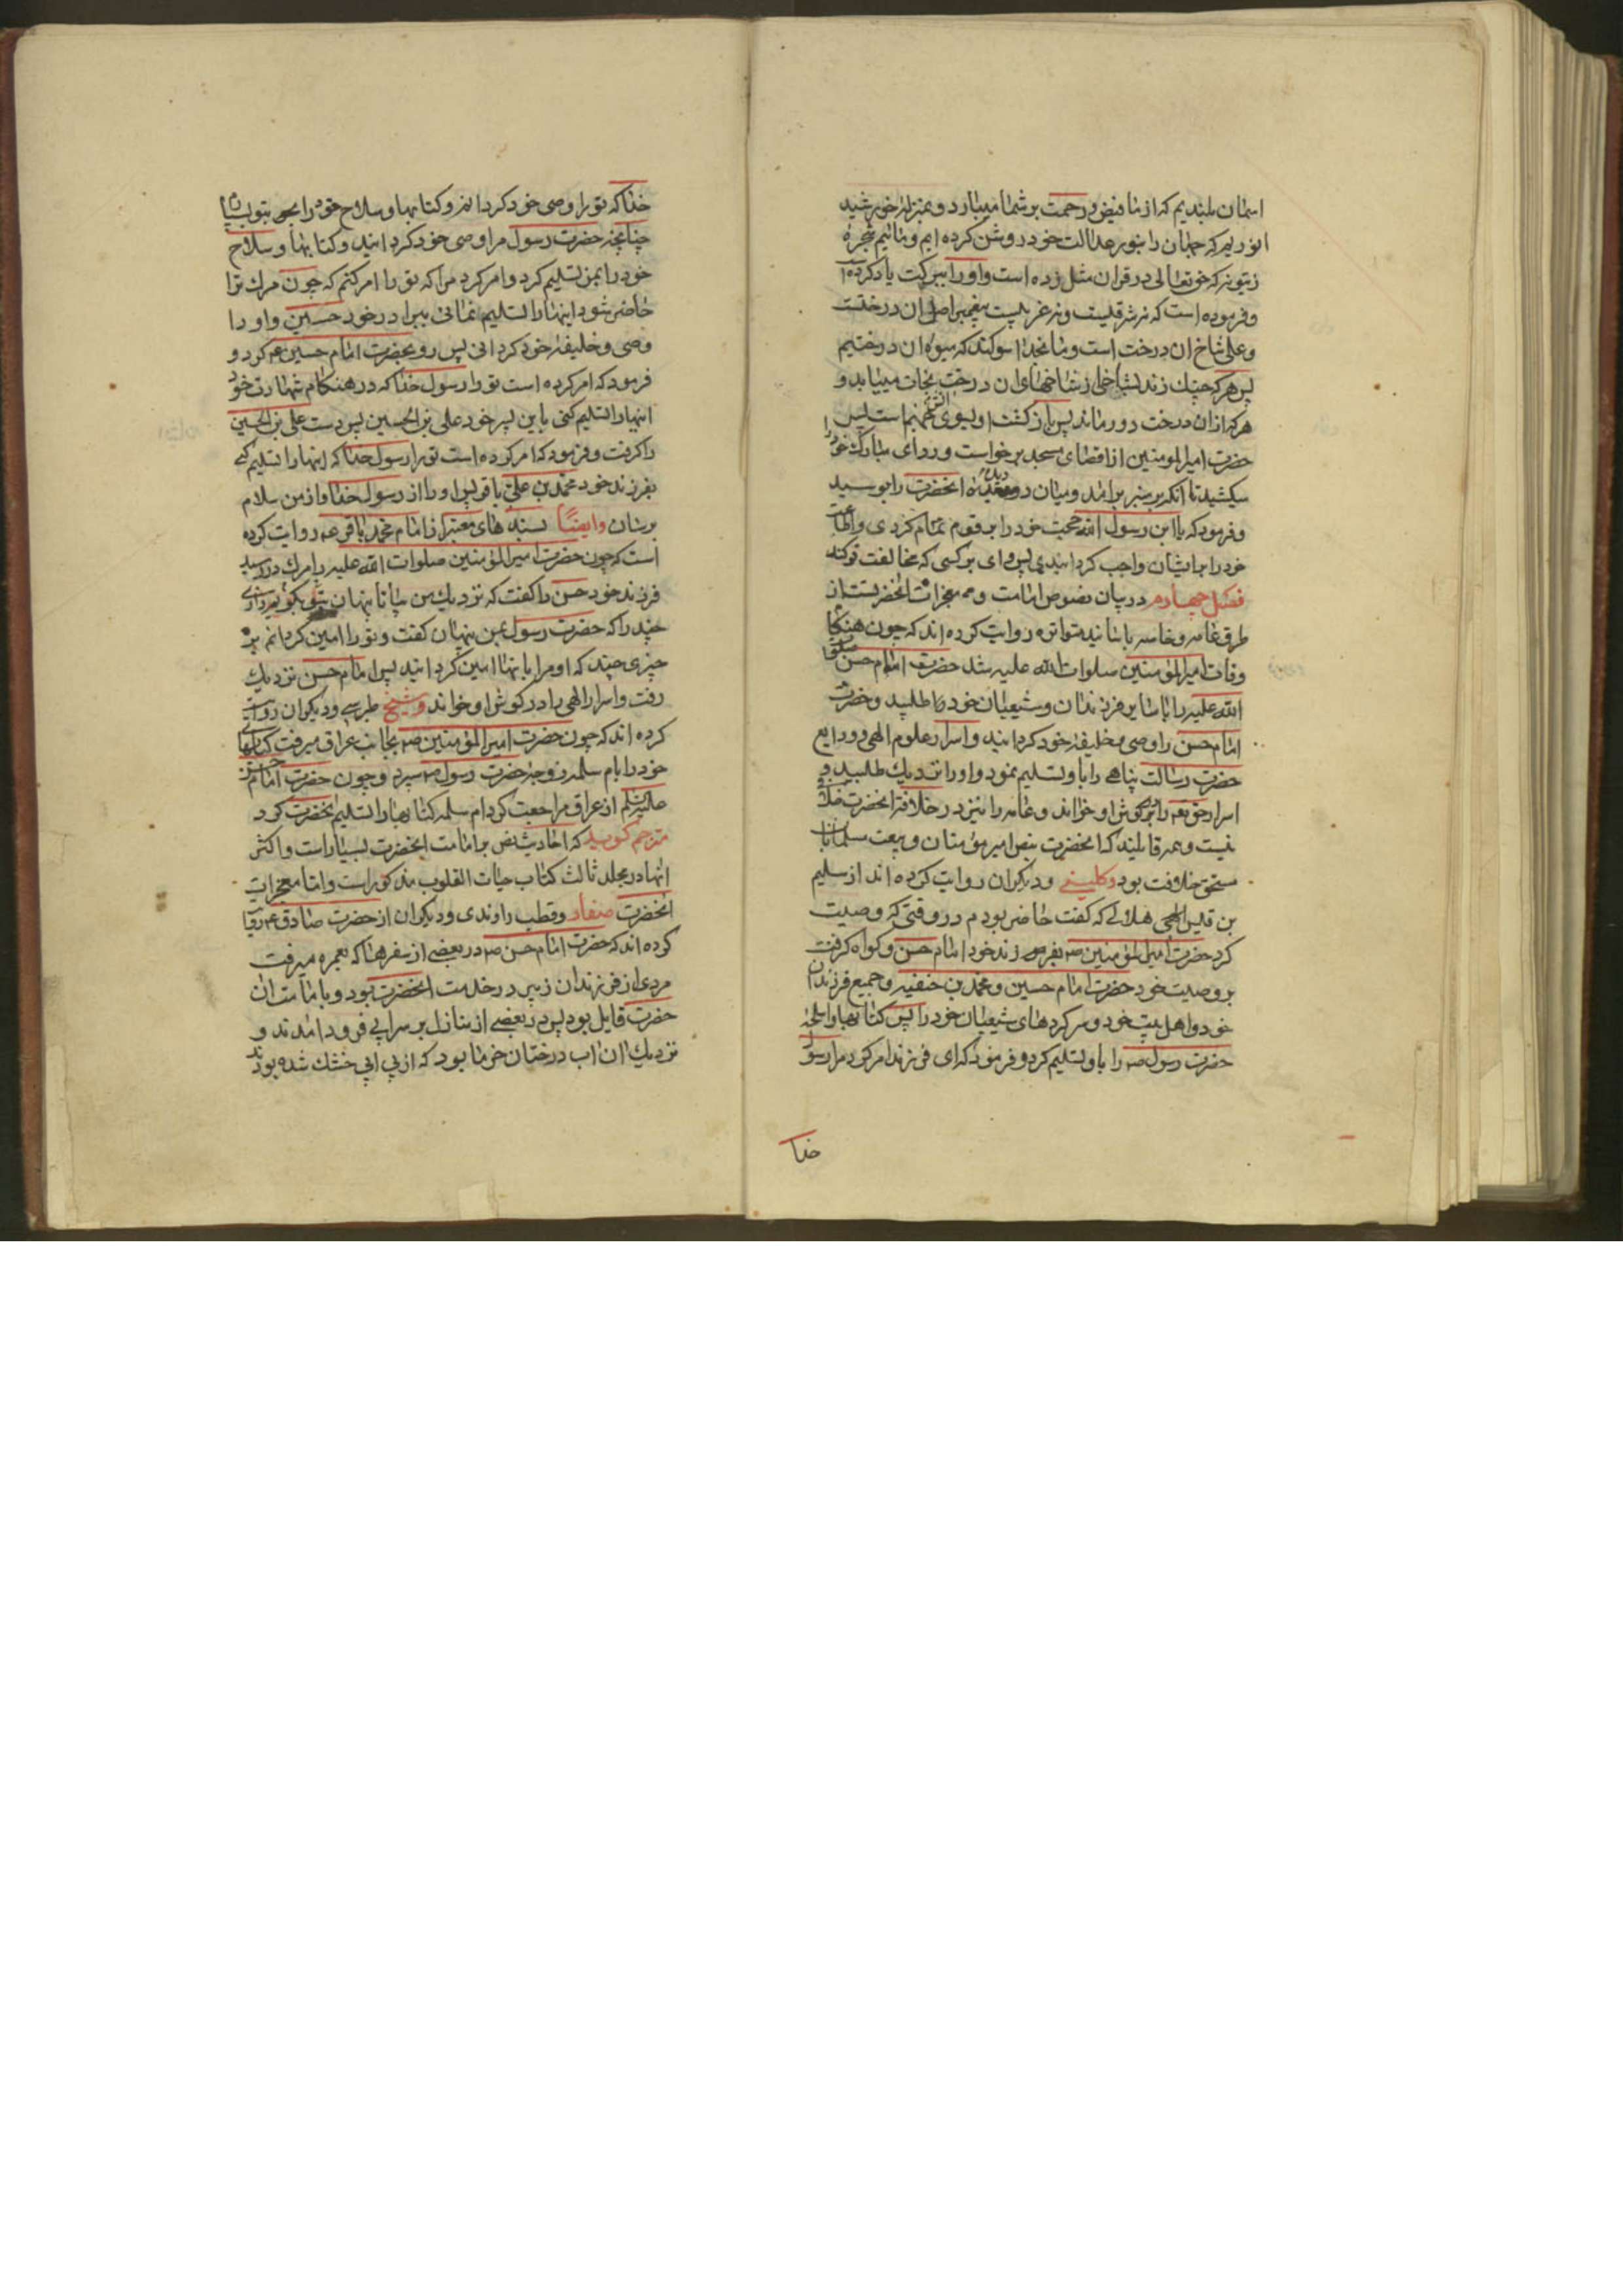 اسمان بلندیم که از ما فیض و رحمت بر شما میبارد و بمنزله خورشید
انوریم که جهان را بنور عدالت خود روشن کرده ایم و مائیم شجره
زیتونه که حق تعالی در قران مثل زده است و او را ببرکت یاد کرده
و فرموده است که نه شرقیست و نه غربیست پیغمبر اصل ان درخت
و علی شاخ ان درخت است و ما بخدا سوکند که میوه ان درختیم
پس هر که چنك زند بشاخی از شاخهای ان درخت نجات مییابد و
هر که از ان درخت دور ماند پس باز کشت او بسوی جهنم است پس
حضرت امیرالمومنین از اقصای مسجد برخواست و ردای مبارك خود
میکشید تا انکه بر منبر برامد و میان دو دیده انحضرت را بوسید
و فرمود که یا ابن رسول الله حجت خود را بر قوم تمام کردی و اطاعت
خود را بر ایشان واجب کردانیدی پس وای بر کسی که مخالفت تو کند
فصل چهارم در بیان نصوص امامت و معجزات انحضرتست از
طرق عامه و خاصه باسانید متواتره روایت کرده اند که چون هنکام
وفات امیرالمؤمنین صلوات الله علیه شد حضرت امام حسن صلوات
الله علیه را با سایر فرزندان و شیعیان خود طلبید و حضرت
امام حسن را وصی و خلیفه خود کردانید و اسرار علوم الهی و ودایع
حضرت رسالت پناهی را باو تسلیم نمود و او را نزدیك طلبید و
اسرار حق تعه را بر کوش او خواند و عامه را نیز در خلافة انحضرت خلافی
نیست و همه قایلند که انحضرت بنص امیر مؤمنان و بیعت مسلمانان
مستحق خلافت بود و کلینی و دیکران روایت کرده اند از سلیم
بن قیس هلالی که کفت حاضر بودم در وقتی که وصیت
کرد حضرت امیرالمؤمنین ص بفرزند خود امام حسن و کواه کرفت
بر وصیت خود حضرت امام حسین و محمد بن حنفیه و جمیع فرزندان
خود و اهل بیت خود و سر کردهای شیعیان خود را پس کتابها و اسلحه
حضرت رسول ص را باو تسلیم کرد و فرمود که ای فرزند امر کرد مرا رسول
خدا
خدا که تو را وصی خود کردانم و کتابها و سلاح خود را بتو بسپارم
چنانچه حضرت رسول مرا وصی خود کردانید و کتابها و سلاح
خود را بمن تسلیم کرد و امر کرد مرا که تو را امر کنم که چون مرك ترا
حاضر شود اینها را تسلیم نمائی ببرادر خود حسین و او را
وصی و خلیفه خود کردانی پس رو بحضرت امام حسین ع کرد و
فرمود که امر کرده است تو را رسول خدا که در هنکام شهادت خود
اینها را تسلیم کنی باین پسر خود علی بن الحسین پس دست علی بن الحسین
را کرفت و فرمود که امر کرده است تو را رسول خدا که اینها را تسلیم کنی
بفرزند خود محمد بن علی باقر پس او را از رسول خدا و از من سلام
برسان وایضًا بسند های معتبر از امام محمد باقر ع روایت کرده
است که چون حضرت امیرالمؤمنین صلوات الله علیه را مرك در رسید
فرزند خود حسن را کفت که نزدیك من بیا تا پنهان بتو بکویم رازی
چند را که حضرت رسول بمن پنهان کفت و تو را امین کردانم بر
چیزی چند که او مرا بانها امین کردانید پس امام حسن نزدیك
رفت و اسرار الهی را در کوش او خواند و شیخ طبرسی و دیکران روایت
کرده اند که چون حضرت امیرالمؤمنین ص بجانب عراق میرفت کتابهای
خود را بام سلمه زوجه حضرت رسول ص سپرد و چون حضرت امام حسن
علیه السلم از عراق مراجعت کرد ام سلمه کتابها را تسلیم انحضرت کرد
مترجم کوید که احادیث نص بر امامت انحضرت بسیار است و اکثر
انها در مجلد ثالث کتاب حیات القلوب مذکور است و اما معجزات
انحضرت صفار و قطب راوندی و دیکران از حضرت صادق ع روایت
کرده اند که حضرت امام حسن ص در بعضی از سفرها که بعمره میرفت
مردی از فرزندان زبیر در خدمت انحضرت بود و بامامت ان
حضرت قایل بود پس در بعضی از منازل بر سر ابی فرود امدند و
نزدیك ان اب درختان خرما بود که از بی ابی خشك شده بودند